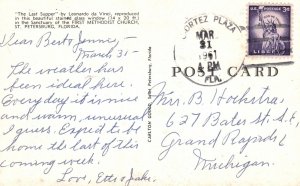 "The Last Supper" by Leonardo da Vinci, reproduced
in this beautiful stained glass window (14 x 20 ft.)
in the Sanctuary of the FIRST METHODIST CHURCH,
ST. PETERSBURG, FLORIDA.
Dear Bert & Jennie
March 31-
The weather has
been ideal here.
Everyday it is nice
and warm, unusual
I guess. Expect to be
home the last of this
coming week.
Love, Etta & Jake.
CORTEZ PLAZA
MAR
31
PM
FLA.
3¢
LIBERTY
POST CARD
Mrs. B Hoekstra
627 Bates St. S.E.
Grand Rapids
Michigan.